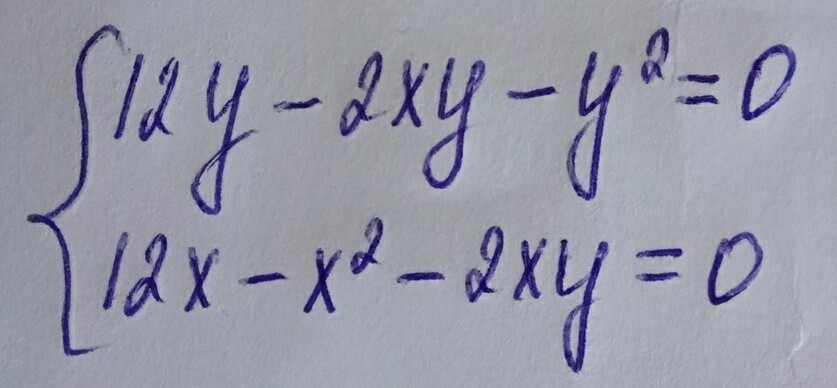 12y - 2xy - y² = 0
12x - x² - 2xy = 0